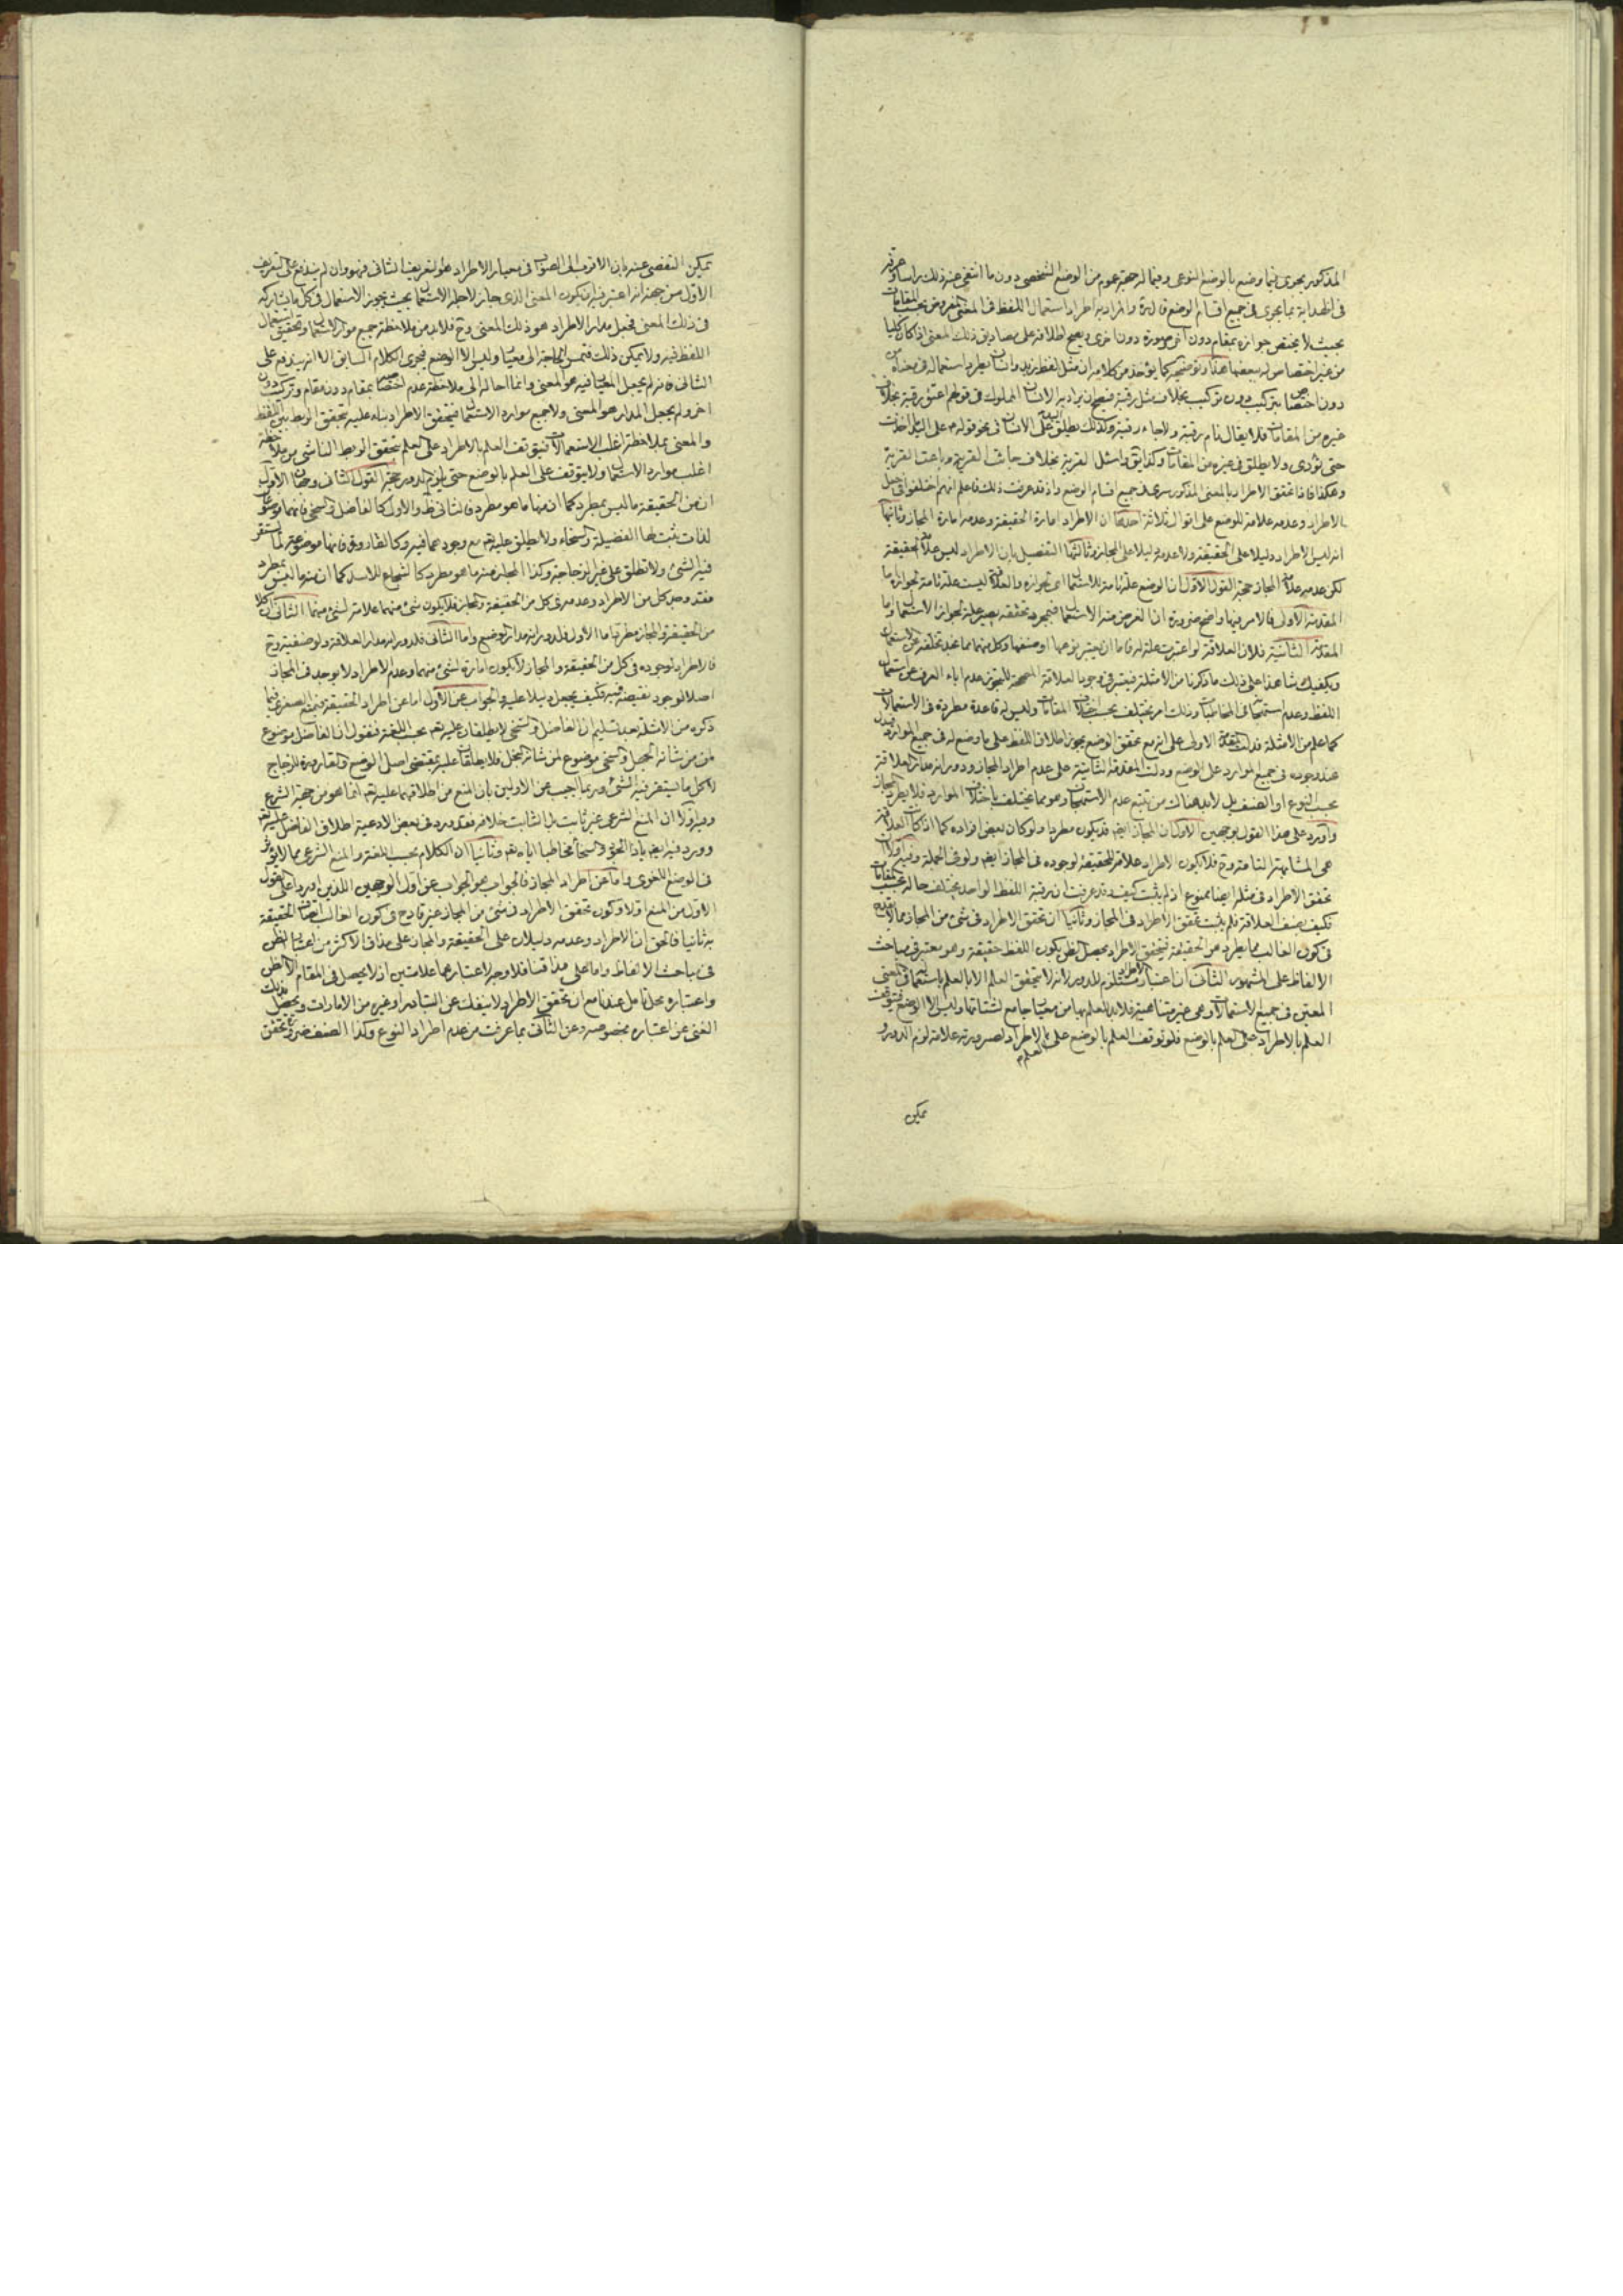 المذكور يجرى فيما وضع بالوضع النوعى وفيما له جهة عموم من الوضع الشخصى دون ما انتفى عنه ذلك راسا وعرفه
فى الهداية بما يجرى فى جميع اقسام الوضع قال والمراد به اطراد استعمال اللفظ فى المعنى المفروض بحسب المقامات
بحيث لا يختص جوازه بمقام دون آخر وصورة دون اخرى ويصح اطلاقه على مصاديق ذلك المعنى اذا كان كليا
من غير اختصاص له ببعضها هذا وتوضيحه كما يؤخذ من كلامه ان مثل لفظ زيد وانسان يطرد استعماله فى معناه من
دون اختصاص بتركيب دون تركيب بخلاف مثل رقبة فيصح ان يراد به الانسان المملوك فى قولهم اعتق رقبة بخلاف
غيره من المقامات فلا يقال نام رقبة ولا جاء رقبة وكذلك يطلق اليد على الانسان فى نحو قوله على اليد ما اخذت
حتى تؤدى ولا يطلق فى غيره من المقامات وكذا يق واسئل القرية بخلاف جائت القرية وباعت القرية
وهكذا فاذا تحقق الاطراد بالمعنى المذكور سرى فى جميع اقسام الوضع واذ قد عرفت ذلك فاعلم انهم اختلفوا فى جعل
الاطراد وعدمه علامة للوضع على اقوال ثلاثة احدها ان الاطراد امارة الحقيقة وعدمه امارة المجاز وثانيها
انه ليس الاطراد دليلا على الحقيقة ولا عدمه دليلا على المجاز وثالثها التفصيل بان الاطراد ليس علامة الحقيقة
لكن عدمه علامة المجاز حجة القول الاول ان الوضع علة تامة للاستعمال اى لجوازه والعلاقة ليست علة تامة لجوازه اما
المقدمة الاولى فالامر فيها واضح ضرورة ان الغرض منه الاستعمال فبمجرد تحققه يصير علة لجواز الاستعمال واما
المقدمة الثانية فلان العلاقة لو اعتبرت علة له فاما ان يعتبر نوعها او صنفها وكل منهما مما نجد تخلفه عن الاستعمال
ويكفيك شاهدا على ذلك ما ذكرنا من الامثلة فيعتبر فى وجوب العلاقة المصححة للتجوز عدم اباء العرف عن استعمال
اللفظ وعدم استهجانه فى المخاطبات وذلك امر يختلف بحسب اختلاف المقامات وليس له قاعدة مطردة فى الاستعمالات
كما علم من الامثلة فدلت المقدمة الاولى على انه مع تحقق الوضع يجوز اطلاق اللفظ على ما وضع له فى جميع الموارد فيدل
عند وجوده فى جميع الموارد على الوضع ودلت المقدمة الثانية على عدم اطراد المجاز ودورانه مدار العلاقة
بحسب النوع او الصنف بل لابد هناك من تتبع عدم الاستهجان وهو مما يختلف باختلاف الموارد فلا يطرد المجاز
واورد على هذا القول بوجهين الاول ان المجاز ايضا قد يكون مطردا ولو كان بعض افراده كما اذا كانت العلاقة
هى المشابهة التامة وح فلا يكون الاطراد علامة للحقيقة لوجوده فى المجاز ايضا ولو فى الجملة وفيه اولا ان
تحقق الاطراد فى مثله ايضا ممنوع اذ لم يثبت كيف وقد عرفت ان رقبة اللفظ الواحد يختلف حاله بحسب المقامات
فكيف بصنف العلاقة فلم يثبت تحقق الاطراد فى المجاز وثانيا ان تحقق الاطراد فى شئ من المجاز مما لا يقدح
فى كون الغالب مما يطرد هو الحقيقة فبتحقق الاطراد يحصل الظن بكون اللفظ حقيقة وهو معتبر فى مباحث
الالفاظ على المشهور الثانى ان اعتبار الاطراد مستلزم للدور لانه لا يتحقق العلم الا بالعلم باستعماله فى المعنى
المعين فى جميع الاستعمالات وهى غير متناهية فلابد للعلم بها من معيار جامع لشتاتها وليس الا الوضع فيتوقف
العلم بالاطراد على العلم بالوضع فلو توقف العلم بالوضع على العلم بالاطراد لصيرورته علامة لزم الدور و
يمكن
يمكن التفصى عنه بان الاقرب الى الصواب فى معيار الاطراد هو التعريف الثانى فهو وان لم يندفع على التعريف
الاول من جهة انه اعتبر فيه ان يكون المعنى الذى جاز لاجله الاستعمال بحيث يجوز الاستعمال فى كل ما يشاركه
فى ذلك المعنى فجعل مدار الاطراد هو ذلك المعنى وح فلابد من ملاحظة جميع موارد الاستعمال وتحقيق استعمال
اللفظ فيه ولا يمكن ذلك فتمس الحاجة الى معيار وليس الا الوضع فيجرى الكلام السابق الا انه يندفع على
الثانى فانه لم يجعل المعيار فيه هو المعنى وانما احاله الى ملاحظة عدم اختصاصه بمقام دون مقام وتركيب دون
اخر ولم يجعل المدار هو المعنى ولا جميع موارد الاستعمال فيتحقق الاطراد بناء عليه بتحقق الربط بين اللفظ
والمعنى بملاحظة اغلب الاستعمالات فيتوقف العلم بالاطراد على العلم بتحقق الربط الناشى من ملاحظة
اغلب موارد الاستعمال ولا يتوقف على العلم بالوضع حتى يلزم الدور حجة القول الثانى وجهان الاول
ان من الحقيقة ما ليس بمطرد كما ان منها ما هو مطرد فالثانى ظ والاول كالفاضل والسخى فانهما موضوعان
لذات يثبت لها الفضيلة والسخاء ولا يطلق عليه تعم مع وجودهما فيه وكالقارورة فانها موضوعة لما يستقر
فيه الشئ ولا تطلق على غير الزجاجة وكذا المجاز منه ما هو مطرد كالشجاع للاسد كما ان منه ما ليس بمطرد
فقد وجد كل من الاطراد وعدمه فى كل من الحقيقة والمجاز فلا يكون شئ منهما علامة لشئ منهما الثانى ان كلا
من الحقيقة والمجاز مطرد اما الاول فلدورانه مدار الوضع واما الثانى فلدورانه مدار العلاقة ولو صنفية وح
فالاطراد لوجوده فى كل من الحقيقة والمجاز لا يكون امارة لشئ منهما وعدم الاطراد لا يوجد فى المجاز
اصلا لوجود نقيضه فيه فكيف يجعل دليلا عليه والجواب عن الاول اما عن اطراد الحقيقة فبمنع الصغرى فيما
ذكره من الامثلة بعد تسليم ان الفاضل والسخى لا يطلقان عليه تعم بحسب اللغة فنقول ان الفاضل موضوع
لمن من شانه الجهل والسخى موضوع لمن شانه البخل فلا يطلقان عليه بمقتضى اصل الوضع والقارورة للزجاج
لا كل ما يستقر فيه الشئ وربما اجيب عن الاولين بان المنع من اطلاقهما عليه تعم انما هو من جهة الشرع
وفيه اولا ان المنع الشرعى غير ثابت بل الثابت خلافه فقد ورد فى بعض الادعية اطلاق الفاضل عليه تعم
وورد فيه ايضا ياذا الجود والسخاء مخاطبا اياه تعم وثانيا ان الكلام بحسب اللغة والمنع الشرعى مما لا يؤثر
فى الوضع اللغوى واما عن اطراد المجاز فالجواب هو الجواب عن اول الوجهين اللذين اورد على القول
الاول من المنع اولا وكون تحقق الاطراد فى شئ من المجاز غير قادح فى كون الغالب اتصاف الحقيقة
به ثانيا فالحق ان الاطراد وعدمه دليلان على الحقيقة والمجاز على مذاق الاكثر من اعتبار الظن
فى مباحث الالفاظ واما على مذاقنا فلا وجه لاعتبارهما علامتين اذ لا يحصل فى المقام الا الظن
واعتباره محل تامل عندنا مع ان تحقق الاطراد لا ينفك عن التبادر او غيره من الامارات ويحصل بذلك
الغنى عن اعتباره بخصوصه وعن الثانى بما عرفت من عدم اطراد النوع وكذا الصنف ضرورة تحقق